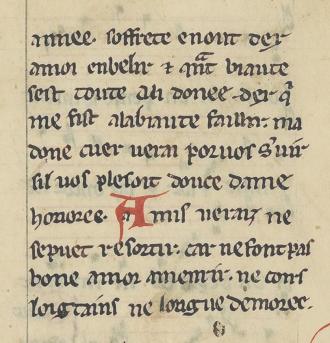 amee. soffrete enoit der
amoi enbelir & qnt biaute
sest toute ali donee. der q
me fist alabiaute faillir. ma
done cuer verai porvos suir
sil vos plesoit douce dame
honoree. Amis veraiz ne
sepuet resortir. car nefont pas
bone amor amentir. ne cons
loigtains ne longue demoree.